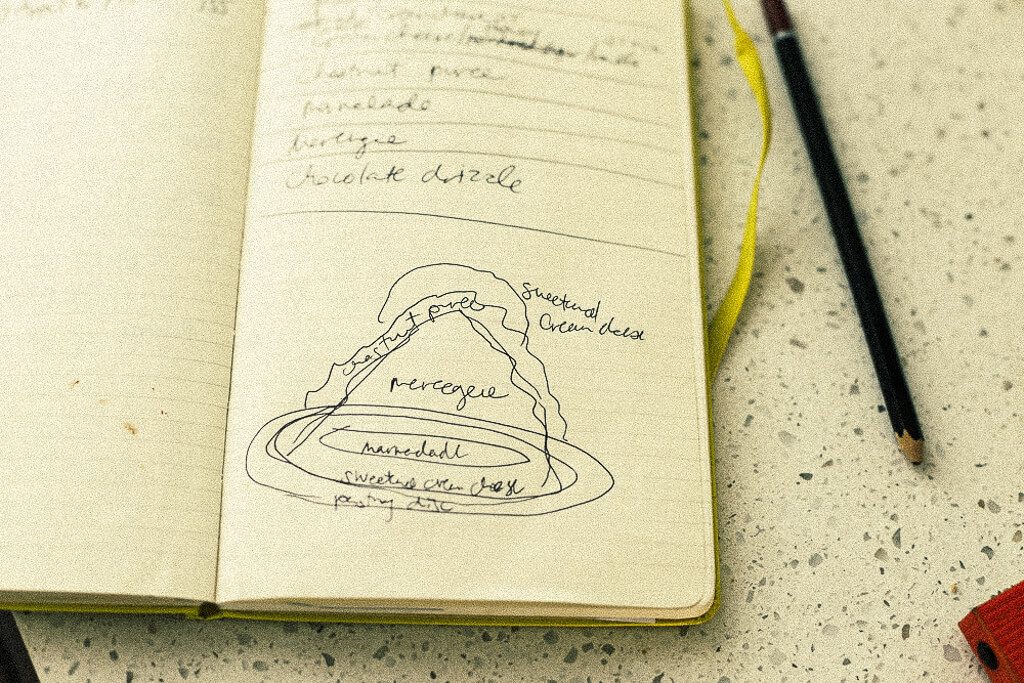 chestnut puree
marmelade
merengue
chocolate drizzle
sweetened
cream cheese
chestnut puree
merengue
marmelade
sweetened cream cheese
pastry disc